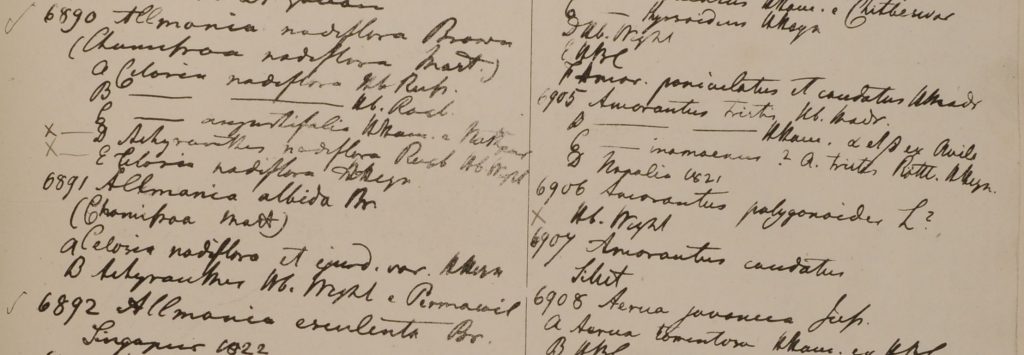 6890 Allmania nodiflora Brown
(Chamissoa nodiflora Mart.)
A Celosia nodiflora Hb. Russ.
B — — Hb. Roxb.
C — angustifolia HHam. e
X — D Achyranthes nodiflora Roxb Hb Wight
X — E Celosia nodiflora HHeyn
6891 Allmania albida Br.
(Chamissoa Mart)
A Celosia nodiflora et ejusd. var. HHeyn
B Achyranthes Hb. Wight e
6892 Allmania esculenta Br.
Singapur 1822
HHam. e
HHeyn
D Hb. Wight
E HBC
F Amar. paniculatus et caudatus HMadr
6905 Amarantus tristis Hb. Madr.
B — — HHam. α et β ex
C — inamaenus ? A. tristis Rottl. HHeyn.
D Napalia 1821
6906 Amarantus polygonoides L?
X Hb. Wight
6907 Amarantus caudatus
Silhet
6908 Aerua javanica Juss.
A Aerua tomentosa HHam. ex HBC
B HBC